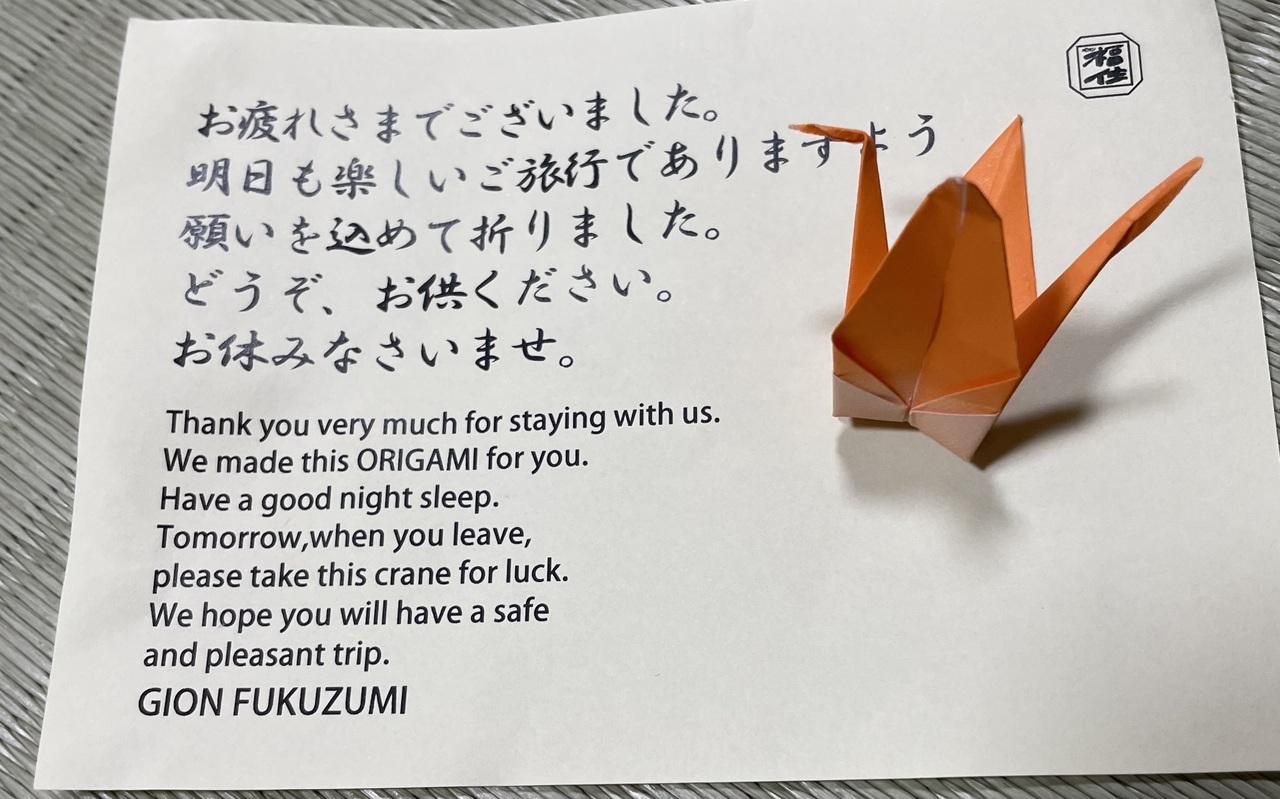 福住
お疲れさまでございました。
明日も楽しいご旅行でありますよう
願いを込めて折りました。
どうぞ、お供ください。
お休みなさいませ。
Thank you very much for staying with us.
We made this ORIGAMI for you.
Have a good night sleep.
Tomorrow,when you leave,
please take this crane for luck.
We hope you will have a safe
and pleasant trip.
GION FUKUZUMI